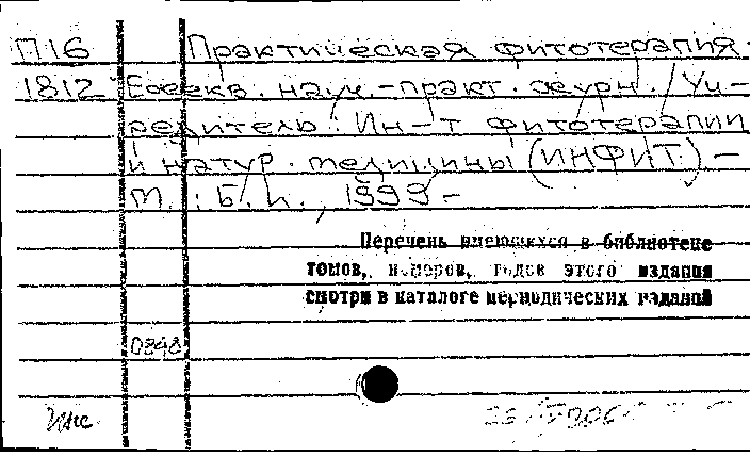 П16 Практическая фитотерапия.
1812 Ежекв. науч.-практ. журн. / Уч-
редитель: Ин-т фитотерапии
и натур. медицины (ИНФИТ). -
М. : Б. и., 1999 -
Перечень имеющихся в библиотеке
томов, номеров, годов этого издания
смотри в каталоге периодических изданий
0898